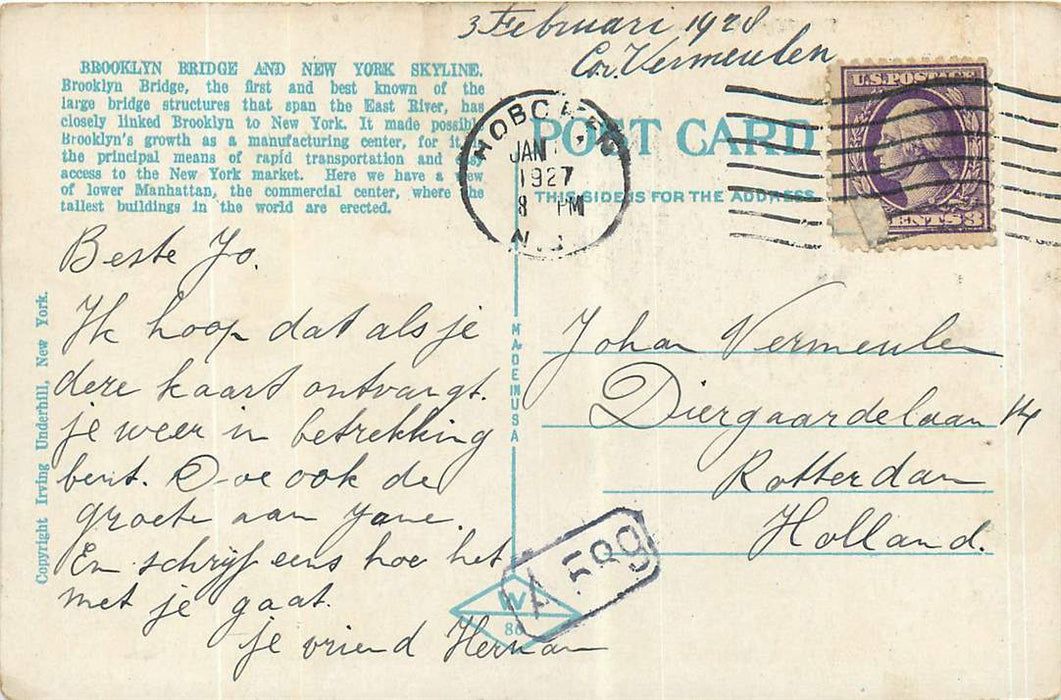 3 Februari 1928
Cor. Vermeulen
BROOKLYN BRIDGE AND NEW YORK SKYLINE.
Brooklyn Bridge, the first and best known of the
large bridge structures that span the East River, has
closely linked Brooklyn to New York. It made possibl
Brooklyn's growth as a manufacturing center, for it
the principal means of rapid transportation and
access to the New York market. Here we have a
of lower Manhattan, the commercial center, where the
tallest buildings in the world are erected.
POST CARD
THIS SIDE IS FOR THE ADDRESS
HOBOKEN
JAN
1927
8 PM
N.J.
U.S. POSTAGE
CENTS 3
Beste Jo.
Ik hoop dat als je
deze kaart ontvangt.
je weer in betrekking
bent. Doe ook de
groete aan Jane.
En schrijf eens hoe het
met je gaat.
je vriend Herman
Copyright Irving Underhill, New York.
MADE IN USA
Johan Vermeulen
Diergaardelaan 14
Rotterdam
Holland.
A 589
W
86